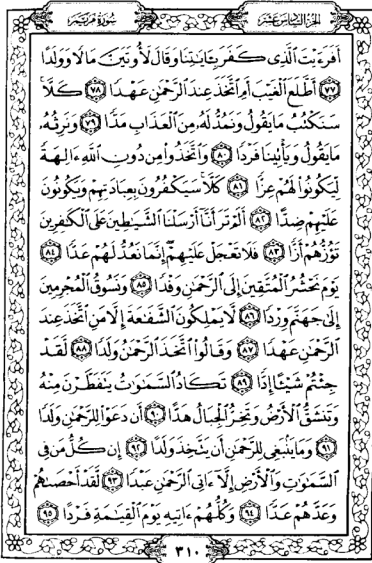 الجزء السادس عشر
سورة مريم
أَفَرَءَيْتَ ٱلَّذِى كَفَرَ بِـَٔايَـٰتِنَا وَقَالَ لَأُوتَيَنَّ مَالًا وَوَلَدًا
٧٧ أَطَّلَعَ ٱلْغَيْبَ أَمِ ٱتَّخَذَ عِندَ ٱلرَّحْمَـٰنِ عَهْدًا ٧٨ كَلَّا
سَنَكْتُبُ مَا يَقُولُ وَنَمُدُّ لَهُۥ مِنَ ٱلْعَذَابِ مَدًّا ٧٩ وَنَرِثُهُۥ
مَا يَقُولُ وَيَأْتِينَا فَرْدًا ٨٠ وَٱتَّخَذُوا۟ مِن دُونِ ٱللَّهِ ءَالِهَةً
لِّيَكُونُوا۟ لَهُمْ عِزًّا ٨١ كَلَّا سَيَكْفُرُونَ بِعِبَادَتِهِمْ وَيَكُونُونَ
عَلَيْهِمْ ضِدًّا ٨٢ أَلَمْ تَرَ أَنَّآ أَرْسَلْنَا ٱلشَّيَـٰطِينَ عَلَى ٱلْكَـٰفِرِينَ
تَؤُزُّهُمْ أَزًّا ٨٣ فَلَا تَعْجَلْ عَلَيْهِمْ إِنَّمَا نَعُدُّ لَهُمْ عَدًّا ٨٤
يَوْمَ نَحْشُرُ ٱلْمُتَّقِينَ إِلَى ٱلرَّحْمَـٰنِ وَفْدًا ٨٥ وَنَسُوقُ ٱلْمُجْرِمِينَ
إِلَىٰ جَهَنَّمَ وِرْدًا ٨٦ لَّا يَمْلِكُونَ ٱلشَّفَـٰعَةَ إِلَّا مَنِ ٱتَّخَذَ عِندَ
ٱلرَّحْمَـٰنِ عَهْدًا ٨٧ وَقَالُوا۟ ٱتَّخَذَ ٱلرَّحْمَـٰنُ وَلَدًا ٨٨ لَّقَدْ
جِئْتُمْ شَيْـًٔا إِدًّا ٨٩ تَكَادُ ٱلسَّمَـٰوَٰتُ يَتَفَطَّرْنَ مِنْهُ
وَتَنشَقُّ ٱلْأَرْضُ وَتَخِرُّ ٱلْجِبَالُ هَدًّا ٩٠ أَن دَعَوْا۟ لِلرَّحْمَـٰنِ وَلَدًا
٩١ وَمَا يَنۢبَغِى لِلرَّحْمَـٰنِ أَن يَتَّخِذَ وَلَدًا ٩٢ إِن كُلُّ مَن فِى
ٱلسَّمَـٰوَٰتِ وَٱلْأَرْضِ إِلَّآ ءَاتِى ٱلرَّحْمَـٰنِ عَبْدًا ٩٣ لَّقَدْ أَحْصَىٰهُمْ
وَعَدَّهُمْ عَدًّا ٩٤ وَكُلُّهُمْ ءَاتِيهِ يَوْمَ ٱلْقِيَـٰمَةِ فَرْدًا ٩٥
٣١٠